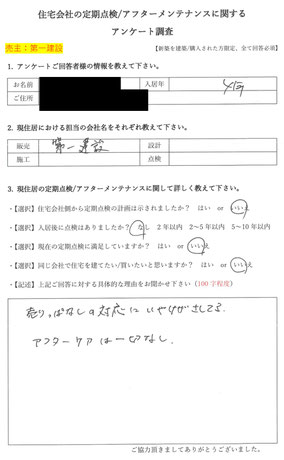 住宅会社の定期点検/アフターメンテナンスに関する
アンケート調査
売主：第一建設
【新築を建築/購入された方限定、全て回答必須】
1. アンケートご回答者様の情報を教えて下さい。
お名前 入居年
ご住所
2. 現住居における担当の会社名をそれぞれ教えて下さい。
販売 第一建設 設計
施工 点検
3. 現住居の定期点検/アフターメンテナンスに関して詳しく教えて下さい。
・【選択】住宅会社側から定期点検の計画は示されましたか？ はい or いいえ
・【選択】入居後に点検はありましたか？ なし 2年以内 2～5年以内 5～10年以内
・【選択】現在の定期点検に満足していますか？ はい or いいえ
・【選択】同じ会社で住宅を建てたい/買いたいと思いますか？ はい or いいえ
・【記述】上記ご回答に対する具体的な理由をお聞かせ下さい（100字程度）
売りっぱなしの対応にいやけがさしてる。
アフターケアは一切なし。
ご協力頂きましてありがとうございました。